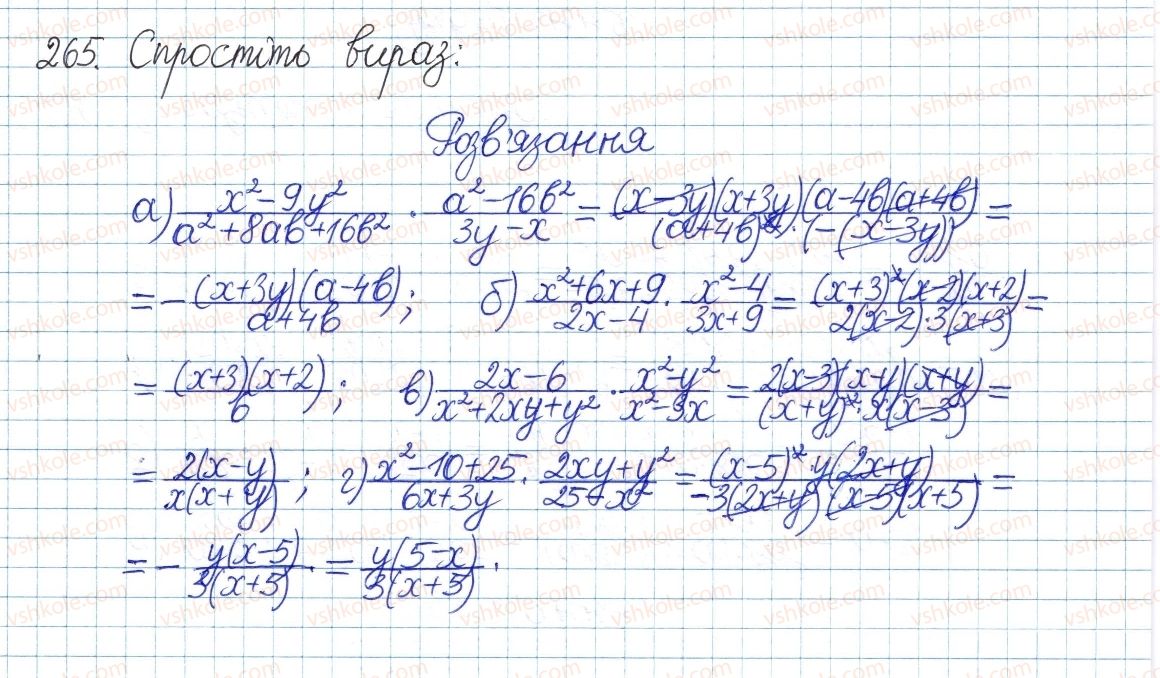 265. Спростіть вираз:
Розв'язання
а) \frac{x^2-9y^2}{a^2+8ab+16b^2} · \frac{a^2-16b^2}{3y-x} = \frac{(x-3y)(x+3y)(a-4b)(a+4b)}{(a+4b)^2·(-(x-3y))} =
= -\frac{(x+3y)(a-4b)}{a+4b}; б) \frac{x^2+6x+9}{2x-4} · \frac{x^2-4}{3x+9} = \frac{(x+3)^2(x-2)(x+2)}{2(x-2)·3(x+3)} =
= \frac{(x+3)(x+2)}{6}; в) \frac{2x-6}{x^2+2xy+y^2} · \frac{x^2-y^2}{x^2-3x} = \frac{2(x-3)(x-y)(x+y)}{(x+y)^2·x(x-3)} =
= \frac{2(x-y)}{x(x+y)}; г) \frac{x^2-10+25}{6x+3y} · \frac{2xy+y^2}{25-x^2} = \frac{(x-5)^2·y(2x+y)}{-3(2x+y)(x-5)(x+5)} =
= -\frac{y(x-5)}{3(x+5)} · = \frac{y(5-x)}{3(x+5)}.